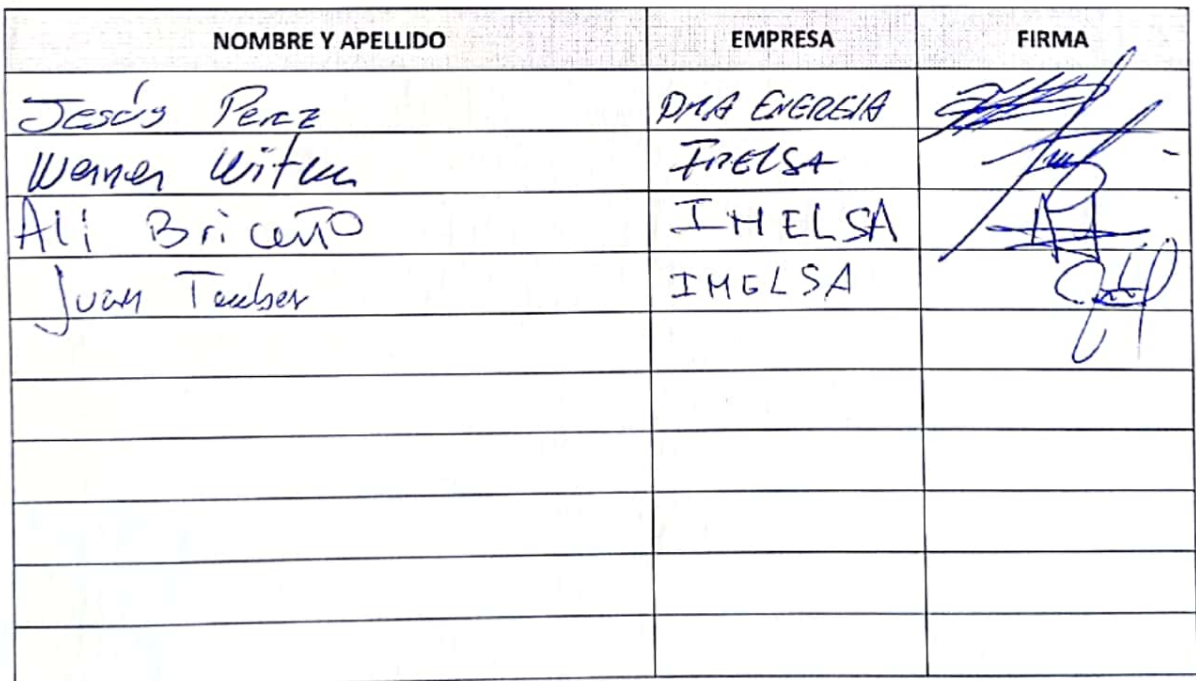 NOMBRE Y APELLIDO EMPRESA FIRMA
Jesús Perez DMA ENERGIA
Werner IMELSA
Ali Briceño IMELSA
Juan Tauber IMELSA